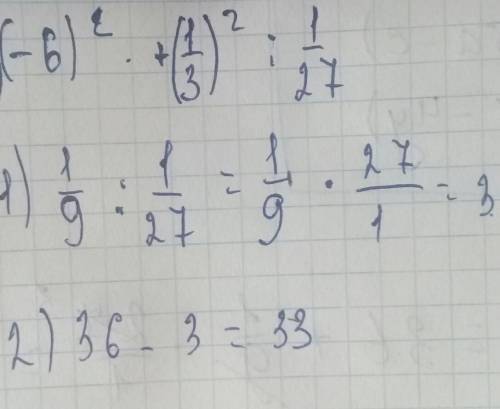 (-6)² · +(1/3)² : 1/27
1) 1/9 : 1/27 = 1/9 · 27/1 = 3
2) 36 - 3 = 33